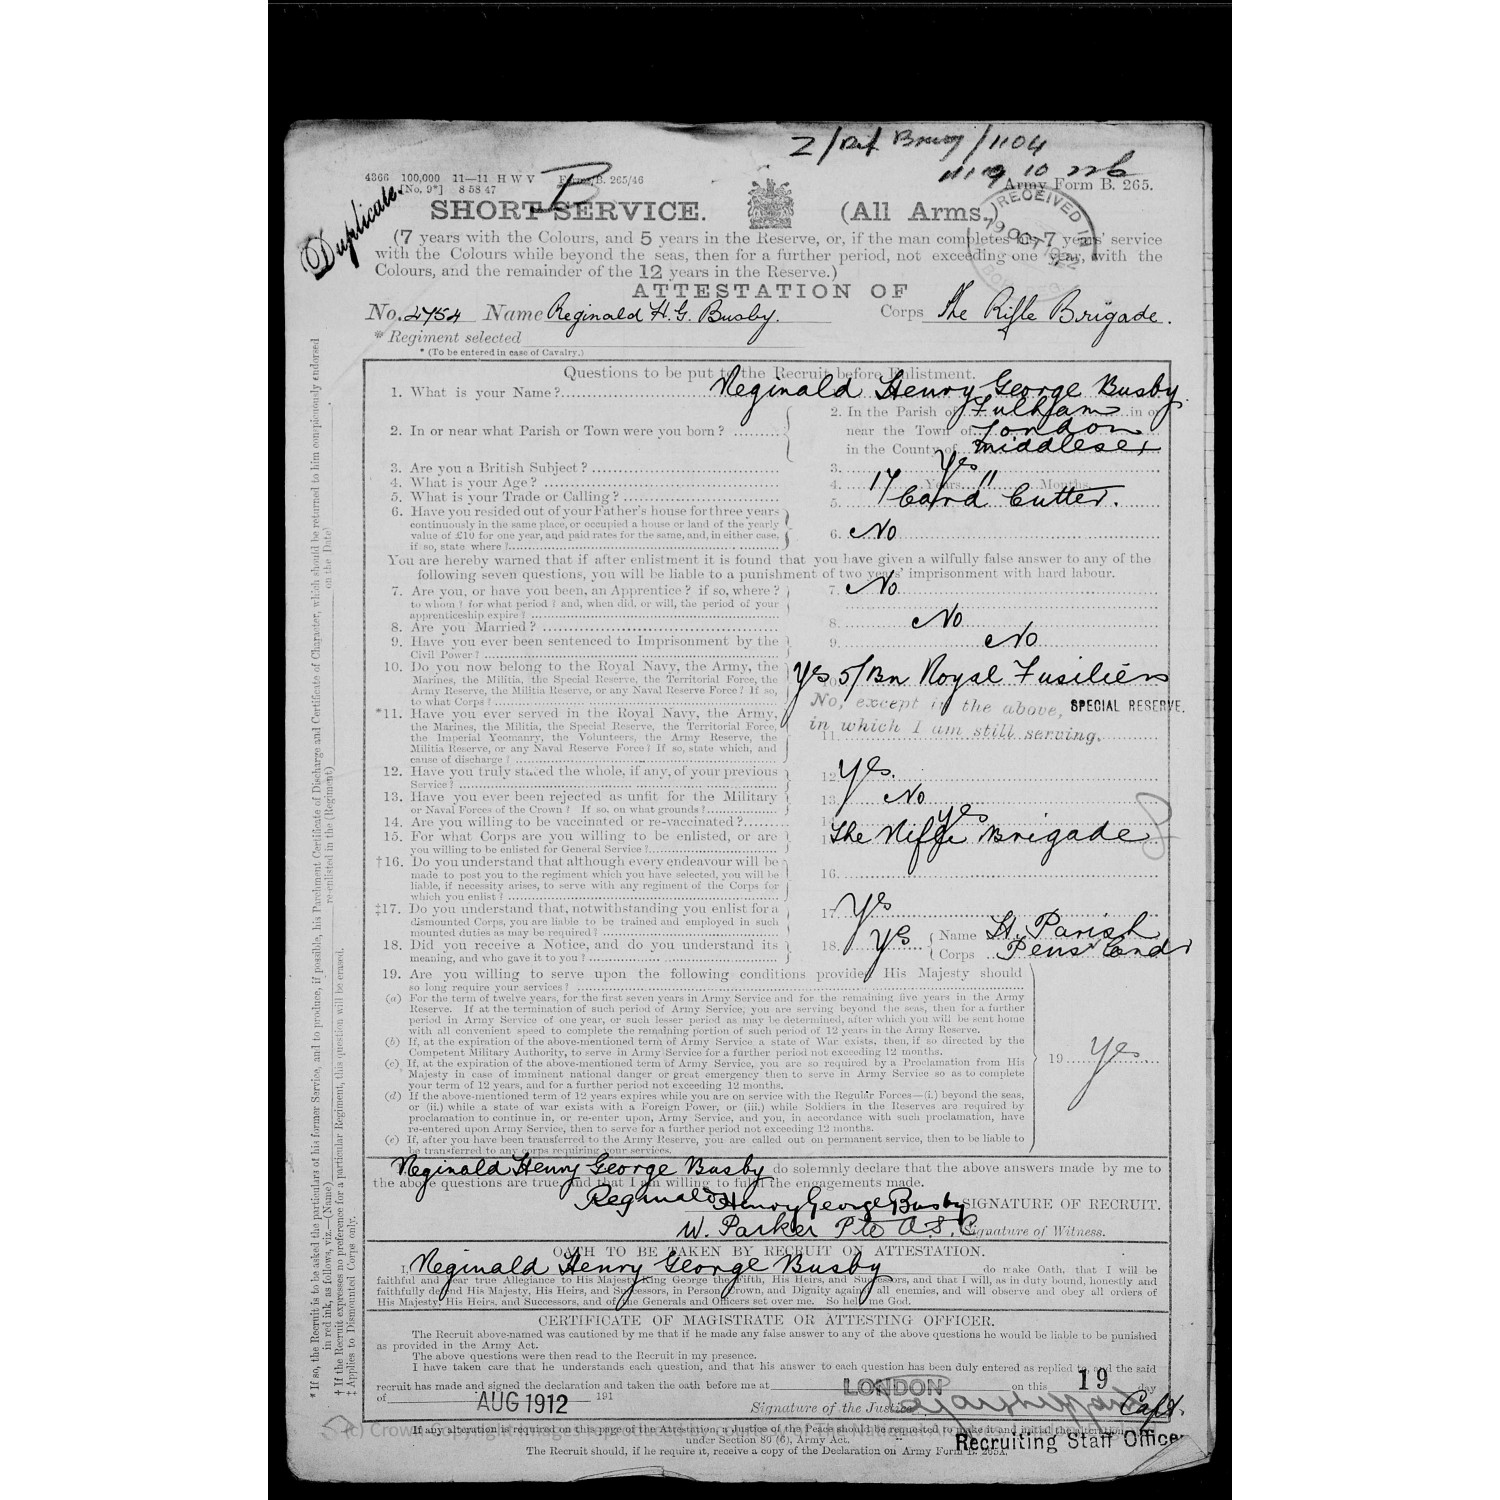 Z/Ref Bury/1104
10 22b
4366 100,000 11—11 H W V Forms/B. 265/46
[No. 9*] 8 58 47
B
Army Form B. 265.
Duplicate.
SHORT SERVICE. (All Arms.)
RECEIVED IN
19 OCT 1922
(7 years with the Colours, and 5 years in the Reserve, or, if the man completes his 7 years' service
with the Colours while beyond the seas, then for a further period, not exceeding one year, with the
Colours, and the remainder of the 12 years in the Reserve.)
ATTESTATION OF
No. 4754 Name Reginald H. G. Busby. Corps The Rifle Brigade.
* Regiment selected
* (To be entered in case of Cavalry.)
Questions to be put to the Recruit before Enlistment.
1. What is your Name? Reginald Henry George Busby.
2. In or near what Parish or Town were you born? 2. In the Parish of Fulham in or
near the Town of London
in the County of Middlesex
3. Are you a British Subject? 3. Yes
4. What is your Age? 4. 17 Years " Months
5. What is your Trade or Calling? 5. Card Cutter.
6. Have you resided out of your Father's house for three years
continuously in the same place, or occupied a house or land of the yearly
value of £10 for one year, and paid rates for the same, and, in either case,
if so, state where? 6. No
You are hereby warned that if after enlistment it is found that you have given a wilfully false answer to any of the
following seven questions, you will be liable to a punishment of two years' imprisonment with hard labour.
7. Are you, or have you been, an Apprentice? if so, where? 7. No
to whom? for what period? and, when did, or will, the period of your
apprenticeship expire?
8. Are you Married? 8. No
9. Have you ever been sentenced to Imprisonment by the
Civil Power? 9. No
10. Do you now belong to the Royal Navy, the Army, the
Marines, the Militia, the Special Reserve, the Territorial Force, the
Army Reserve, the Militia Reserve, or any Naval Reserve Force? If so,
to what Corps? Yes 5/Bn Royal Fusiliers
SPECIAL RESERVE.
*11. Have you ever served in the Royal Navy, the Army,
the Marines, the Militia, the Special Reserve, the Territorial Force,
the Imperial Yeomanry, the Volunteers, the Army Reserve, the
Militia Reserve, or any Naval Reserve Force? If so, state which, and
cause of discharge? 11. No, except in the above,
in which I am still serving.
12. Have you truly stated the whole, if any, of your previous
Service? 12. Yes.
13. Have you ever been rejected as unfit for the Military
or Naval Forces of the Crown? If so, on what grounds? 13. No
14. Are you willing to be vaccinated or re-vaccinated? Yes
15. For what Corps are you willing to be enlisted, or are
you willing to be enlisted for General Service? The Rifle Brigade
†16. Do you understand that although every endeavour will be
made to post you to the regiment which you have selected, you will be
liable, if necessity arises, to serve with any regiment of the Corps for
which you enlist? 16.
‡17. Do you understand that, notwithstanding you enlist for a
dismounted Corps, you are liable to be trained and employed in such
mounted duties as may be required? 17. Yes
18. Did you receive a Notice, and do you understand its
meaning, and who gave it to you? 18. Yes Name H. Parish
Corps Pens
19. Are you willing to serve upon the following conditions provided His Majesty should
so long require your services?
(a) For the term of twelve years, for the first seven years in Army Service and for the remaining five years in the Army
Reserve. If at the termination of such period of Army Service, you are serving beyond the seas, then for a further
period in Army Service of one year, or such lesser period as may be determined, after which you will be sent home
with all convenient speed to complete the remaining portion of such period of 12 years in the Army Reserve.
(b) If, at the expiration of the above-mentioned term of Army Service a state of War exists, then, if so directed by the
Competent Military Authority, to serve in Army Service for a further period not exceeding 12 months.
(c) If, at the expiration of the above-mentioned term of Army Service, you are so required by a Proclamation from His
Majesty in case of imminent national danger or great emergency then to serve in Army Service so as to complete
your term of 12 years, and for a further period not exceeding 12 months.
(d) If the above-mentioned term of 12 years expires while you are on service with the Regular Forces—(i.) beyond the seas,
or (ii.) while a state of war exists with a Foreign Power, or (iii.) while Soldiers in the Reserves are required by
proclamation to continue in, or re-enter upon, Army Service, and you, in accordance with such proclamation, have
re-entered upon Army Service, then to serve for a further period not exceeding 12 months.
(e) If, after you have been transferred to the Army Reserve, you are called out on permanent service, then to be liable to
be transferred to any corps requiring your services.
19 Yes
Reginald Henry George Busby do solemnly declare that the above answers made by me to
the above questions are true, and that I am willing to fulfil the engagements made.
Reginald Henry George Busby SIGNATURE OF RECRUIT.
W. Parker Pte A.S.C. Signature of Witness.
OATH TO BE TAKEN BY RECRUIT ON ATTESTATION.
I, Reginald Henry George Busby do make Oath, that I will be
faithful and bear true Allegiance to His Majesty King George the Fifth, His Heirs, and Successors, and that I will, as in duty bound, honestly and
faithfully defend His Majesty, His Heirs, and Successors, in Person, Crown, and Dignity against all enemies, and will observe and obey all orders of
His Majesty, His Heirs, and Successors, and of the Generals and Officers set over me. So help me God.
CERTIFICATE OF MAGISTRATE OR ATTESTING OFFICER.
The Recruit above-named was cautioned by me that if he made any false answer to any of the above questions he would be liable to be punished
as provided in the Army Act.
The above questions were then read to the Recruit in my presence.
I have taken care that he understands each question, and that his answer to each question has been duly entered as replied to, and the said
recruit has made and signed the declaration and taken the oath before me at LONDON on this 19 day
of AUG 1912 191
Signature of the Justice Capt.
Recruiting Staff Officer
If any alteration is required on this page of the Attestation, a Justice of the Peace should be requested to make it and initial the alteration
under Section 80 (6), Army Act.
The Recruit should, if he require it, receive a copy of the Declaration on Army Form B. 265A.
* If so, the Recruit is to be asked the particulars of his former Service, and to produce, if possible, his Parchment Certificate of Discharge and Certificate of Character, which should be returned to him conspicuously endorsed
in red ink, as follows, viz.—(Name) re-enlisted in the (Regiment) on the (Date)
† If the Recruit expresses no preference for a particular Regiment, this question will be erased.
‡ Applies to Dismounted Corps only.